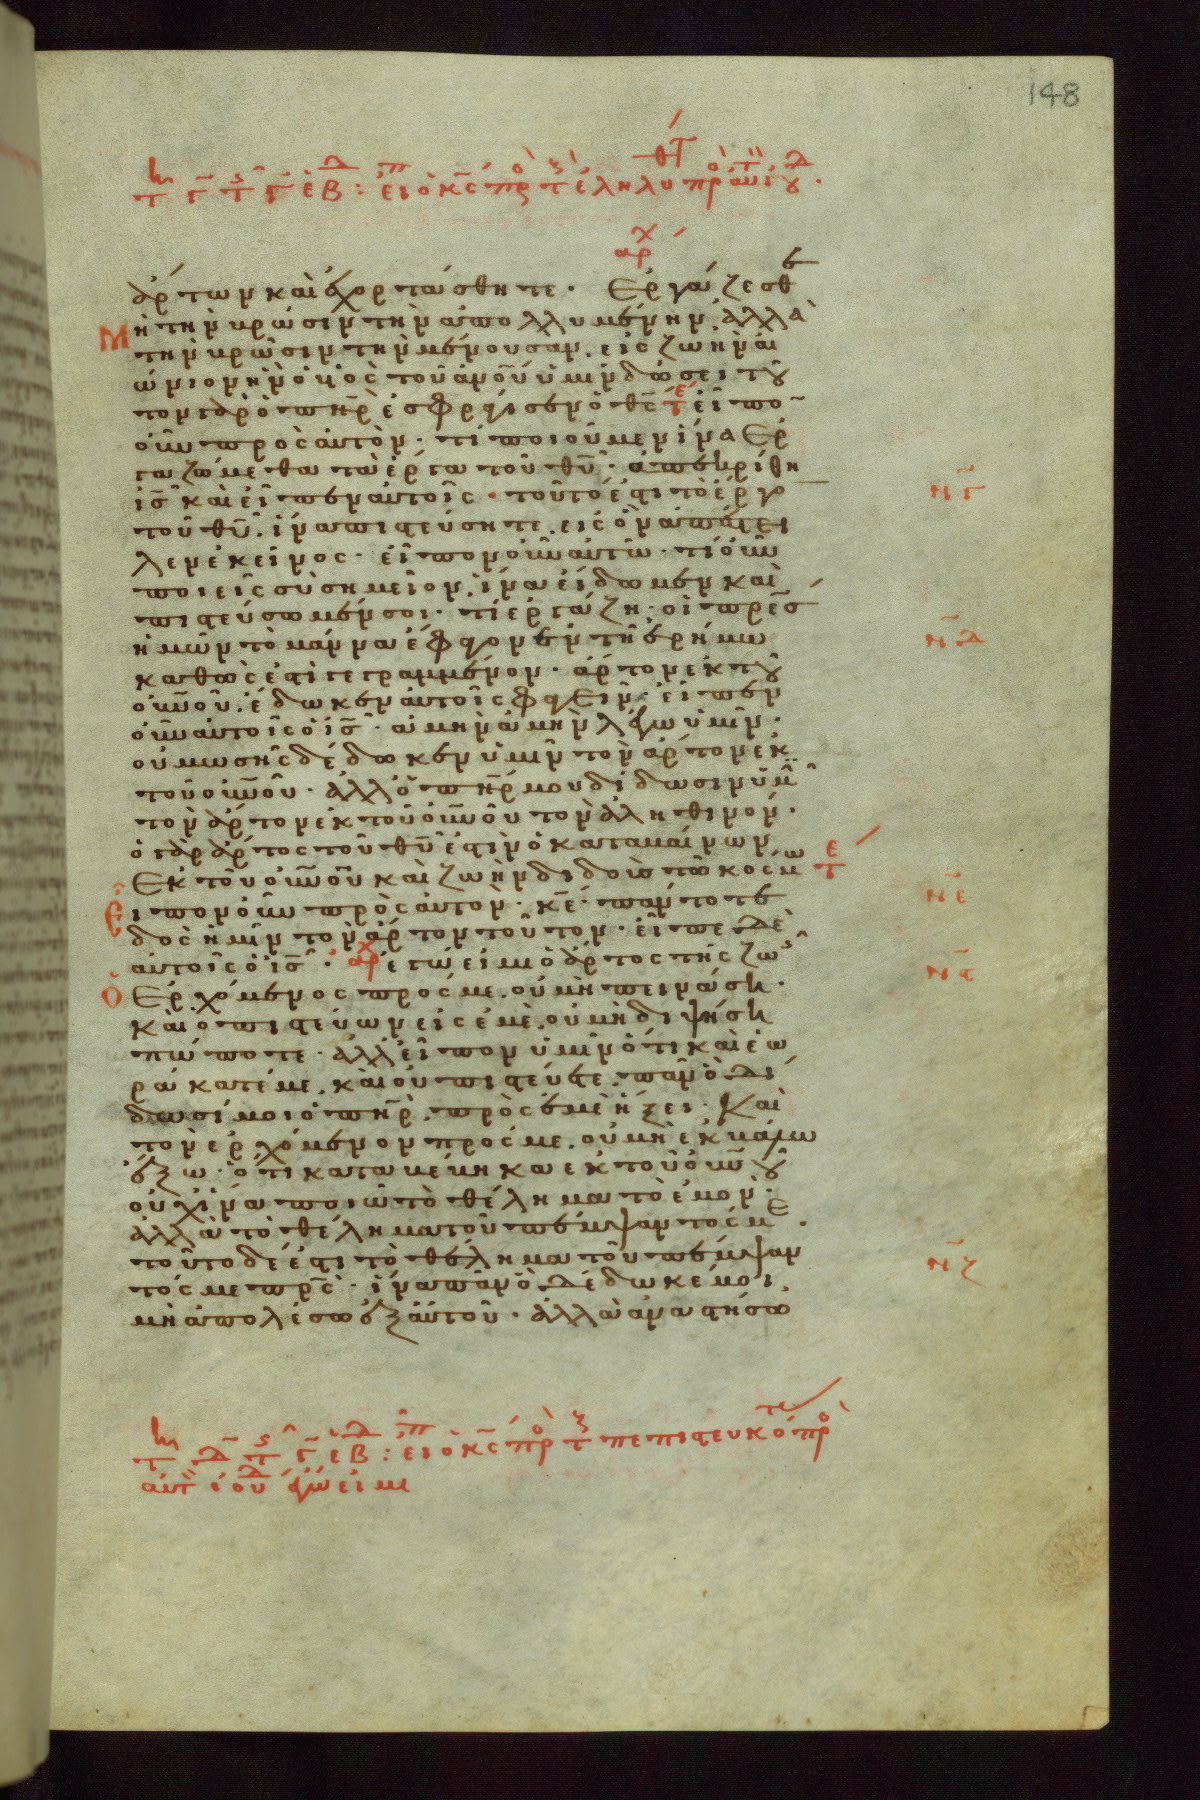 148
ἄρτων καὶ ἐχορτάσθητε· Ἐργάζεσθε
μὴ τὴν βρῶσιν τὴν ἀπολλυμένην, ἀλλὰ
τὴν βρῶσιν τὴν μένουσαν εἰς ζωὴν αἰ
ώνιον ἣν ὁ υἱὸς τοῦ ἀνου ὑμῖν δώσει τοῦ
τον γὰρ ὁ πηρ ἐσφράγισεν ὁ θς εἶπον
οὖν πρὸς αὐτόν· τί ποιοῦμεν ἵνα ἐρ
γαζώμεθα τὰ ἔργα τοῦ θυ· ἀπεκρίθη
ις καὶ εἶπεν αὐτοῖς· τοῦτό ἐστι τὸ ἔργον
τοῦ θυ, ἵνα πιστεύσητε εἰς ὃν ἀπέστει
λεν ἐκεῖνος· εἶπον οὖν αὐτῶ· τί οὖν
ποιεῖς σὺ σημεῖον, ἵνα εἴδωμεν καὶ
πιστεύσωμέν σοι· τί ἐργάζη· οἱ πρες
ἡμῶν τὸ μάννα ἔφαγον ἐν τῆ ἐρήμω
καθώς ἐστι γεγραμμένον· ἄρτον ἐκ τοῦ
οὐνου ἔδωκεν αὐτοῖς φαγεῖν· εἶπεν
οὖν αὐτοῖς ὁ ις· ἀμὴν ἀμὴν λέγω ὑμῖν·
οὐ μωσῆς δέδωκεν ὑμῖν τὸν ἄρτον ἐκ
τοῦ οὐνου· ἀλλ' ὁ πηρ μου δίδωσιν ὑμῖν
τὸν ἄρτον ἐκ τοῦ οὐνου τὸν ἀληθινόν·
ὁ γὰρ ἄρτος τοῦ θυ ἐστιν ὁ καταβαίνων
ἐκ τοῦ οὐνου καὶ ζωὴν διδοὺς τῶ κόσμω
εἶπον οὖν πρὸς αὐτόν· κε· πάντοτε
δὸς ἡμῖν τὸν ἄρτον τοῦτον· εἶπε δὲ
αὐτοῖς ὁ ις· ἐγώ εἰμι ὁ ἄρτος τῆς ζωῆς
ὁ ἐρχόμενος πρός με, οὐ μὴ πεινάση·
καὶ ὁ πιστεύων εἰς ἐμὲ, οὐ μὴ διψήση
πώποτε· ἀλλ' εἶπον ὑμῖν ὅτι καὶ ἑω
ράκατέ με, καὶ οὐ πιστεύετε. πᾶν ὃ δί
δωσί μοι ὁ πηρ, πρὸς ἐμὲ ἥξει· καὶ
τὸν ἐρχόμενον πρός με, οὐ μὴ ἐκβάλω
ἔξω· ὅτι καταβέβηκα ἐκ τοῦ οὐνου
οὐχ ἵνα ποιῶ τὸ θέλημα τὸ ἐμόν·
ἀλλὰ τὸ θέλημα τοῦ πέμψαντός με·
τοῦτο δέ ἐστι τὸ θέλημα τοῦ πέμψαν
τός με πρς· ἵνα πᾶν ὃ δέδωκέ μοι,
μὴ ἀπολέσω ἐξ αὐτοῦ· ἀλλὰ ἀναστήσω